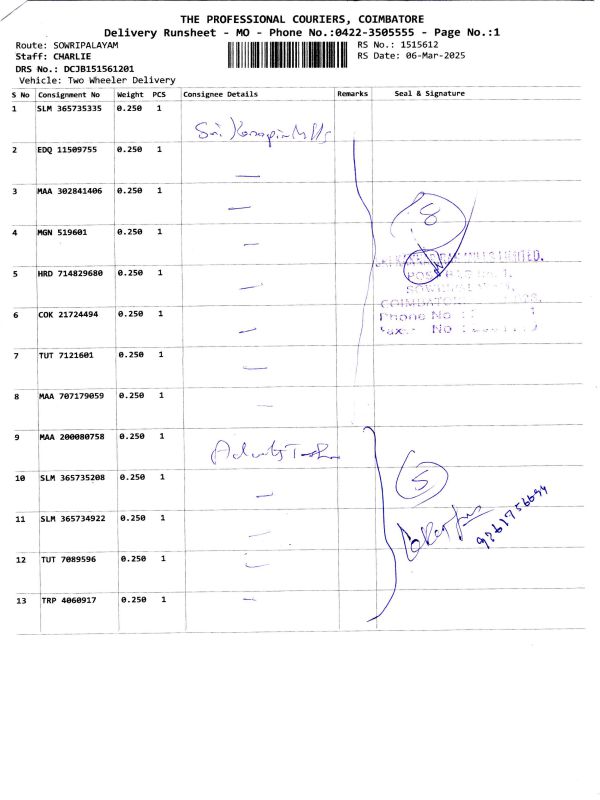 THE PROFESSIONAL COURIERS, COIMBATORE
Delivery Runsheet - MO - Phone No.:0422-3505555 - Page No.:1
Route: SOWRIPALAYAM
RS No.: 1515612
Staff: CHARLIE
RS Date: 06-Mar-2025
DRS No.: DCJB151561201
Vehicle: Two Wheeler Delivery
S No Consignment No Weight PCS Consignee Details Remarks Seal & Signature
1 SLM 365735335 0.250 1
2 EDQ 11509755 0.250 1
3 MAA 302841406 0.250 1
4 MGN 519601 0.250 1
5 HRD 714829680 0.250 1
6 COK 21724494 0.250 1
7 TUT 7121601 0.250 1
8 MAA 707179059 0.250 1
9 MAA 200080758 0.250 1
10 SLM 365735208 0.250 1
11 SLM 365734922 0.250 1
12 TUT 7089596 0.250 1
13 TRP 4060917 0.250 1
8
Phone No :
No :
5